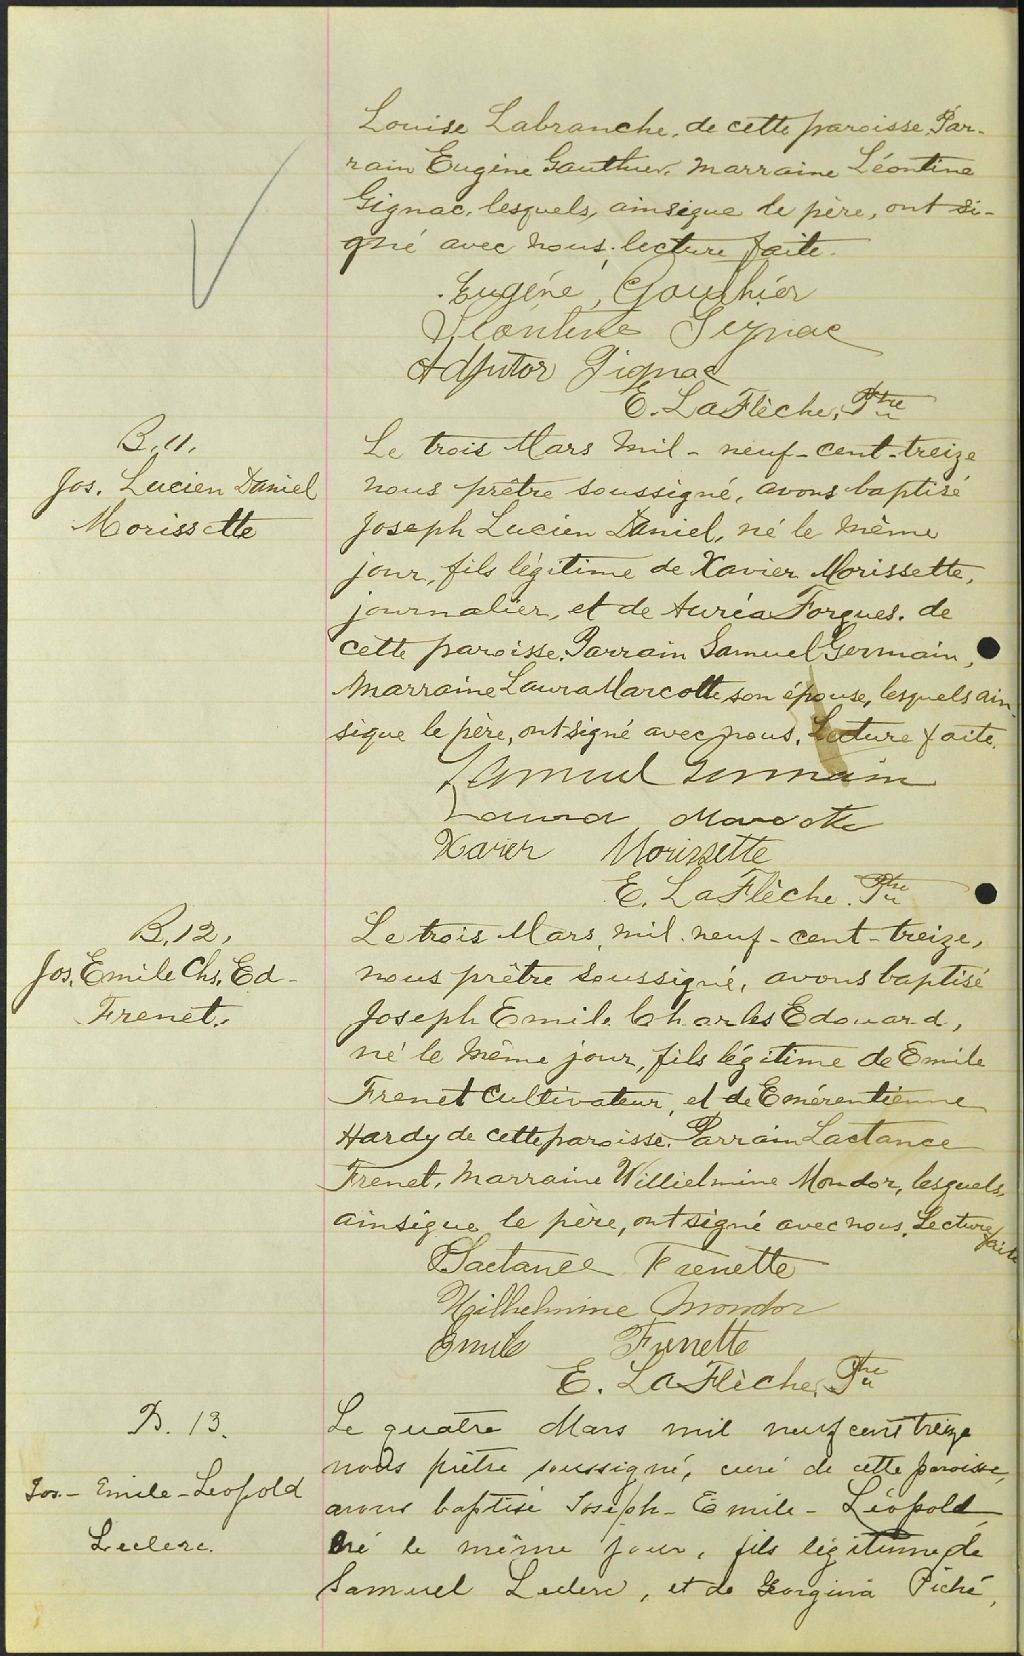 Louise Labranche, de cette paroisse. Par-
rain Eugène Gauthier, Marraine Léontine
Gignac, lesquels, ainsique le père, ont si-
gné avec nous, lecture faite.
Eugéne Gauthier
Léontine Gignac
Adjutor Gignac
E. LaFlèche, Ptre
B. 11.
Jos. Lucien Daniel
Morissette
Le trois Mars mil-neuf-cent-treize
nous prêtre soussigné, avons baptisé
Joseph Lucien Daniel, né le même
jour, fils légitime de Xavier Morissette,
journalier, et de Auréa Forgues. de
cette paroisse. Parrain Samuel Germain,
Marraine Laura Marcotte son épouse, lesquels ain-
sique le père, ont signé avec nous. Lecture faite.
Samuel Germain
Laura Marcotte
Xavier Morissette
E. LaFlèche. Ptre
B. 12,
Jos. Emile Chs. Ed-
Frenet.
Le trois Mars, mil-neuf-cent-treize,
nous prêtre soussigné, avons baptisé
Joseph Emile Charles Edouard,
né le même jour, fils légitime de Emile
Frenet Cultivateur, et de Emérentienne
Hardy de cette paroisse. Parrain Lactance
Frenet, Marraine Willielmine Mondor, lesquels,
ainsique le père, ont signé avec nous. Lecture faite
Lactance Frenette
Wilhelmine Mondor
Emile Frenette
E. LaFlèche, Ptre
B. 13.
Jos.- Emile-Leopold
Leclerc.
Le quatre Mars mil neuf cent treize
nous prêtre soussigné, curé de cette paroisse,
avons baptisé Joseph-Emile-Léopold
né le même jour, fils légitime de
Samuel Leclerc, et de Georgina Piché,